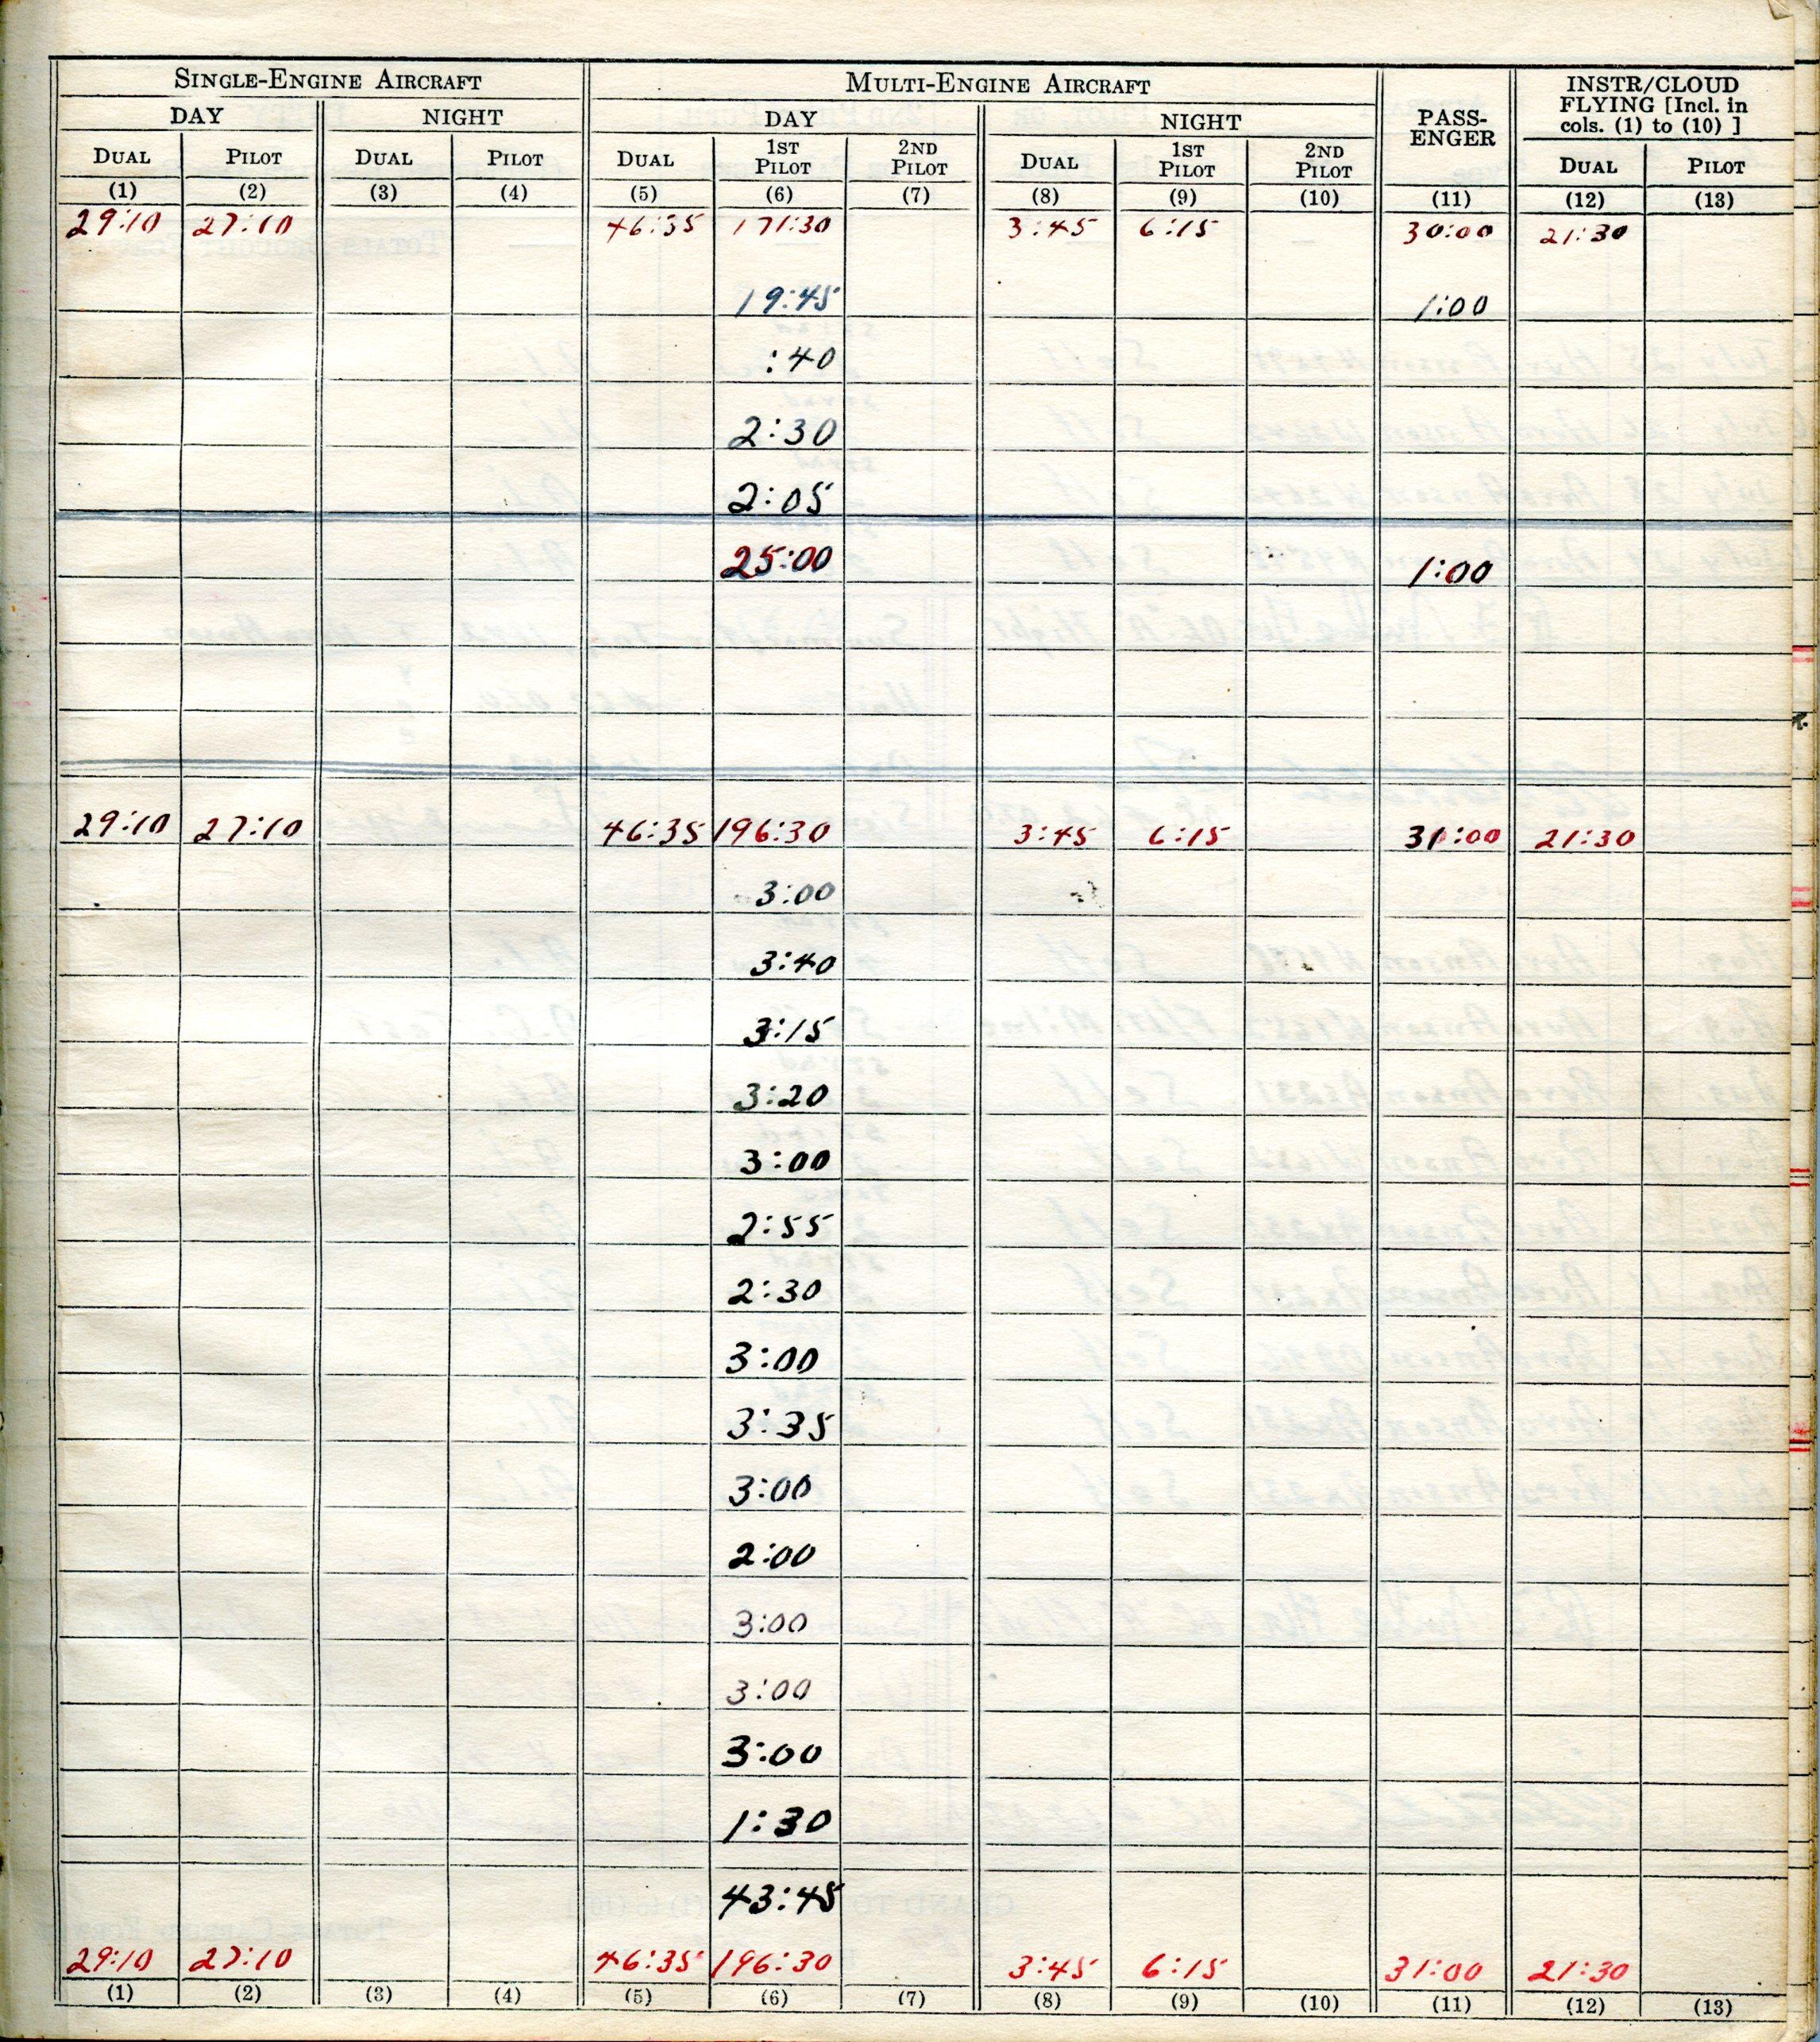 SINGLE-ENGINE AIRCRAFT MULTI-ENGINE AIRCRAFT PASS-ENGER INSTR/CLOUD FLYING [Incl. in cols. (1) to (10) ]
DAY NIGHT DAY NIGHT
DUAL PILOT DUAL PILOT DUAL 1ST PILOT 2ND PILOT DUAL 1ST PILOT 2ND PILOT DUAL PILOT
(1) (2) (3) (4) (5) (6) (7) (8) (9) (10) (11) (12) (13)
29:10 27:10 46:35 171:30 3:45 6:15 30:00 21:30
19:45 1:00
:40
2:30
2:05
25:00 1:00
29:10 27:10 46:35 196:30 3:45 6:15 31:00 21:30
3:00
3:40
3:15
3:20
3:00
2:55
2:30
3:00
3:35
3:00
2:00
3:00
3:00
3:00
1:30
43:45
29:10 27:10 46:35 196:30 3:45 6:15 31:00 21:30
(1) (2) (3) (4) (5) (6) (7) (8) (9) (10) (11) (12) (13)